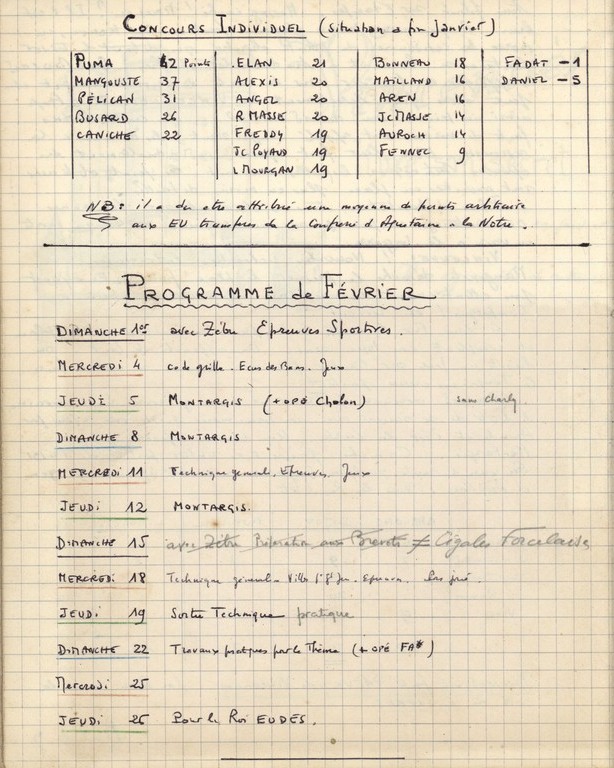 CONCOURS INDIVIDUEL (situation a fin janvier)
PUMA 42 Points
MANGOUSTE 37
PÉLICAN 31
BUSARD 26
CANICHE 22
ELAN 21
ALEXIS 20
ANGEL 20
R MASSE 20
FREDDY 19
JC POYAUD 19
L MOURGAN 19
BONNEAU 18
MAILLAND 16
AREN 16
JC MASSE 14
AUROCH 14
FENNEC 9
FADAT -1
DANIEL -5
NB: il a du etre attribué une moyenne de points arbitraire
aux EU transferes de la Confrerie d'Aquitaine a la Notre.
PROGRAMME de FÉVRIER
DIMANCHE 1er avec Zébu Epreuves Sportives.
MERCREDI 4 code grille. Jeux
JEUDI 5 MONTARGIS (+ OPÉ Chalon) sans Charly
DIMANCHE 8 MONTARGIS
MERCREDI 11 Technique generale. Epreuves. Jeux
JEUDI 12 MONTARGIS.
DIMANCHE 15 avec Zébu ≠ Cigales
MERCREDI 18 Technique générale.
JEUDI 19 Sortie Technique pratique
DIMANCHE 22 Travaux pratiques par le Thème (+ OPÉ FA*)
Mercredi 25
JEUDI 26 Pour le Roi EUDES.